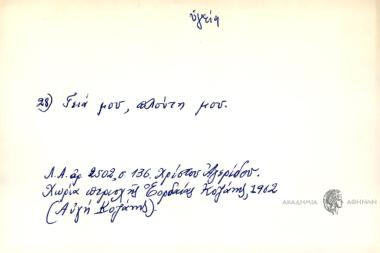 ὑγεία
28) Γειά μου, πλούτη μου.
Λ.Α. ἀρ 2502, σ 136. Χρήστου
Χωρία περιοχῆς Ἑορδαίας Κοζάνης, 1962
(Αὐγή Κοζάνης).
ΑΚΑΔΗΜΙΑ ΑΘΗΝΩΝ